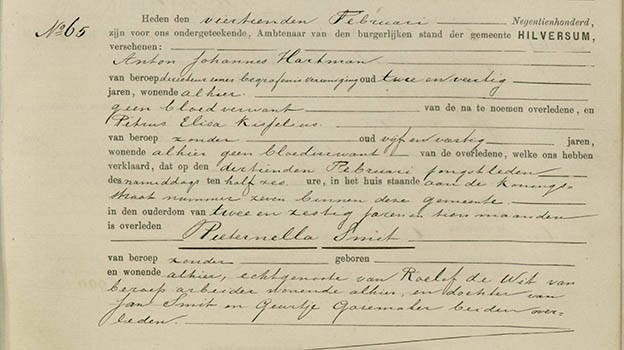 Nº 65
Heden den viertienden Februari Negentienhonderd,
zijn voor ons ondergeteekende, Ambtenaar van den burgerlijken stand der gemeente HILVERSUM,
verschenen:
Anton Johannes Hartman
van beroep directeur eener begrafenisvereeniging oud twee en veertig
jaren, wonende alhier
geen bloedverwant van de na te noemen overledene, en
Petrus Elisa
van beroep zonder oud vijf en veertig jaren,
wonende alhier geen bloedverwant van de overledene, welke ons hebben
verklaard, dat op den dertienden Februari jongstleden
des namiddags ten half zes ure, in het huis staande aan de Konings-
straat nummer zeven binnen deze gemeente
in den ouderdom van twee en zestig jaren en tien maanden
is overleden Pieternella Smit
van beroep zonder geboren
en wonende alhier, echtgenoote van Roelof de Wit van
beroep arbeider wonende alhier, en dochter van
Jan Smit en Geertje beiden over-
leden.